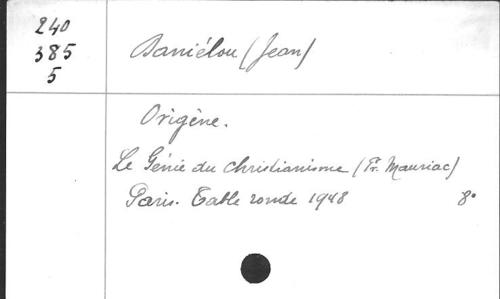 240
385
5
Daniélou (Jean)
Origène.
Le Génie du christianisme (Fr. Mauriac)
Paris. Table ronde 1948 8°